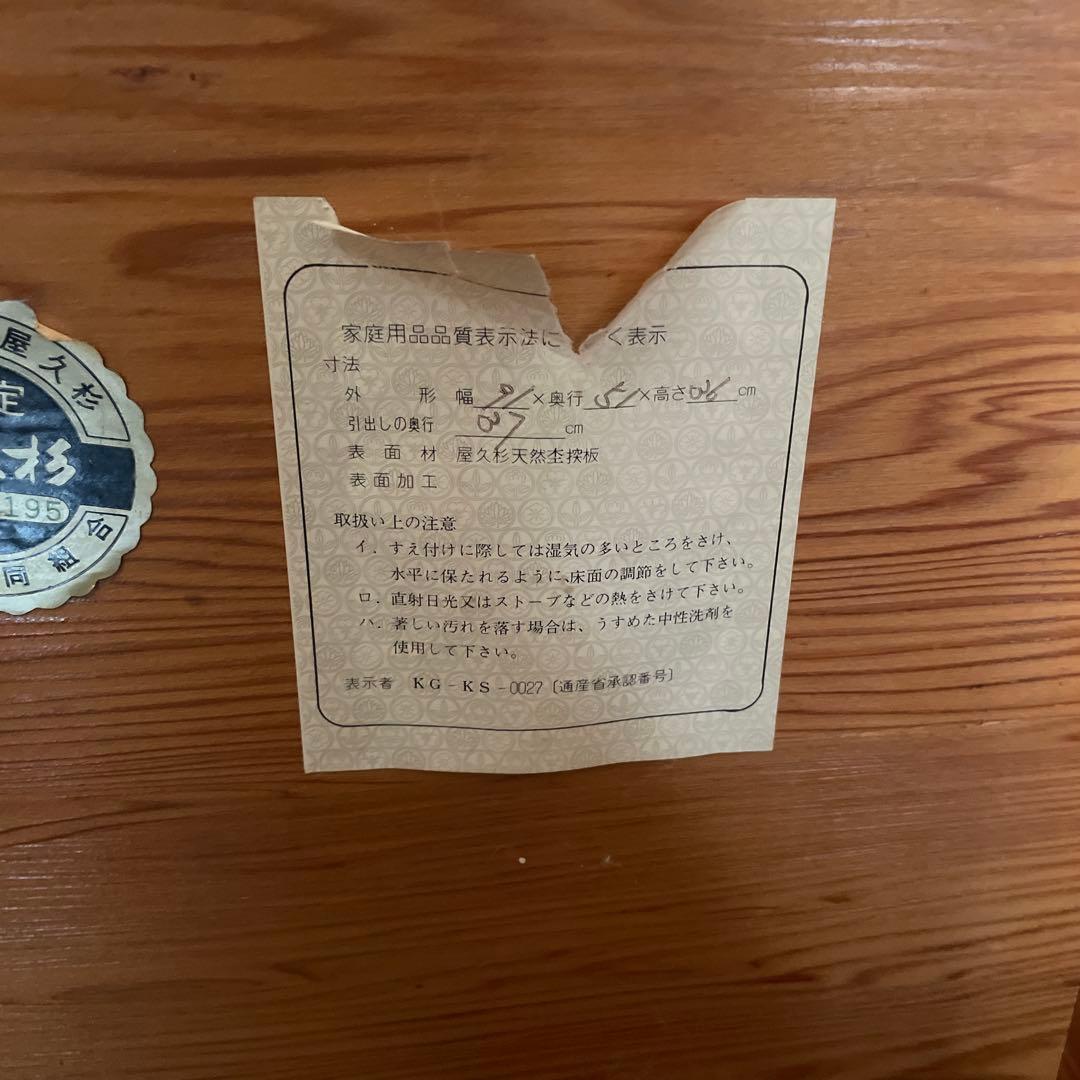 屋久杉
定
杉
195
同組合
家庭用品品質表示法に く表示
寸法
外形 幅 91 ×奥行 51 ×高さ 36 cm
引出しの奥行 37 cm
表面材 屋久杉天然杢揬板
表面加工
取扱い上の注意
イ．すえ付けに際しては湿気の多いところをさけ、
水平に保たれるように、床面の調節をして下さい。
ロ．直射日光又はストーブなどの熱をさけて下さい。
ハ．著しい汚れを落す場合は、うすめた中性洗剤を
使用して下さい。
表示者 KG-KS-0027〔通産省承認番号〕